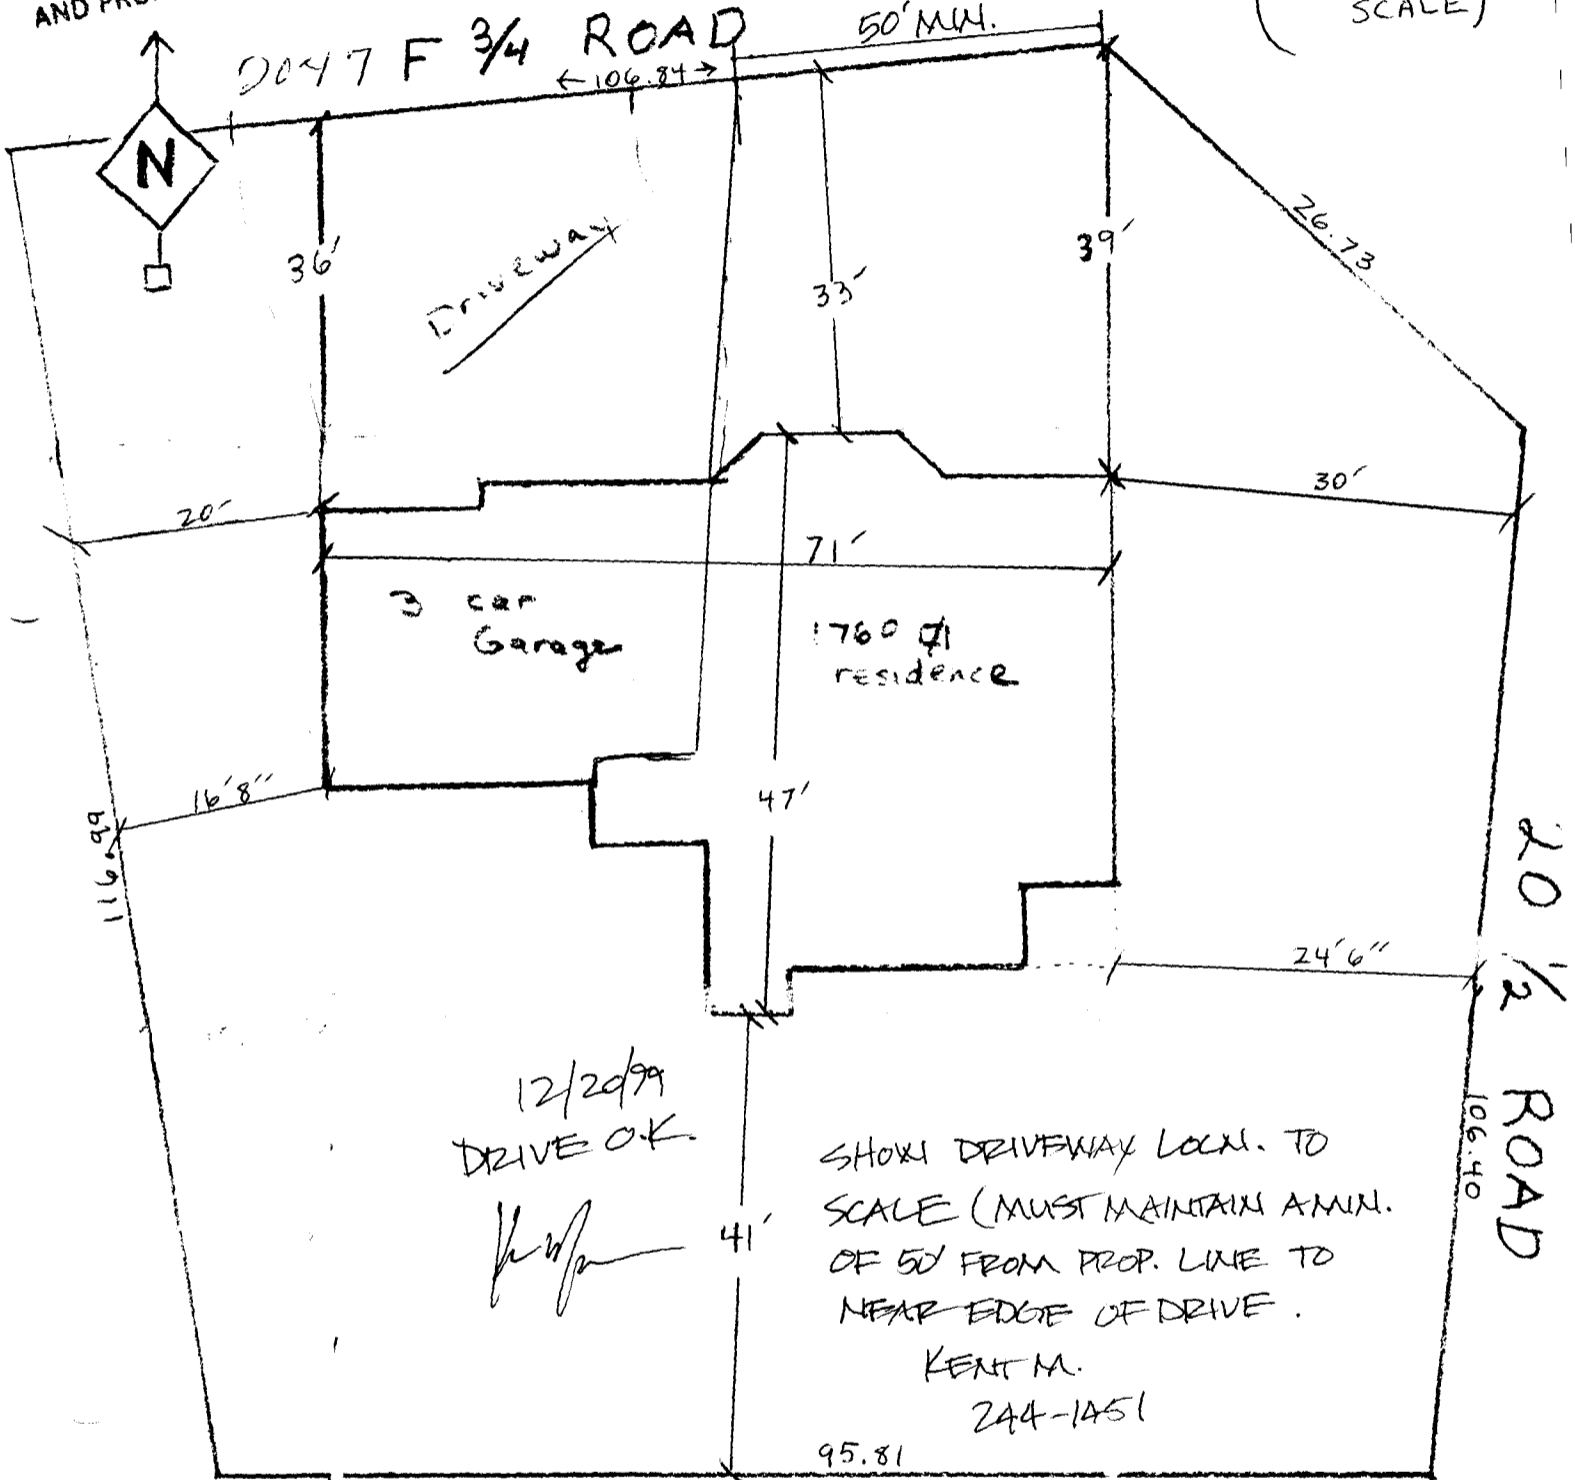 AND
SCALE)
50' MIN.
2047 F 3/4 ROAD
106.84
N
36'
Driveway
33'
39'
26.73
20'
30'
71'
3 car
Garage
1760
residence
16'8"
47'
116.99
24'6"
20 1/2 ROAD
106.40
12/20/99
DRIVE O.K.
41'
SHOW DRIVEWAY LOCN. TO
SCALE (MUST MAINTAIN A MIN.
OF 50' FROM PROP. LINE TO
NEAR EDGE OF DRIVE.
KENT M.
244-1451
95.81